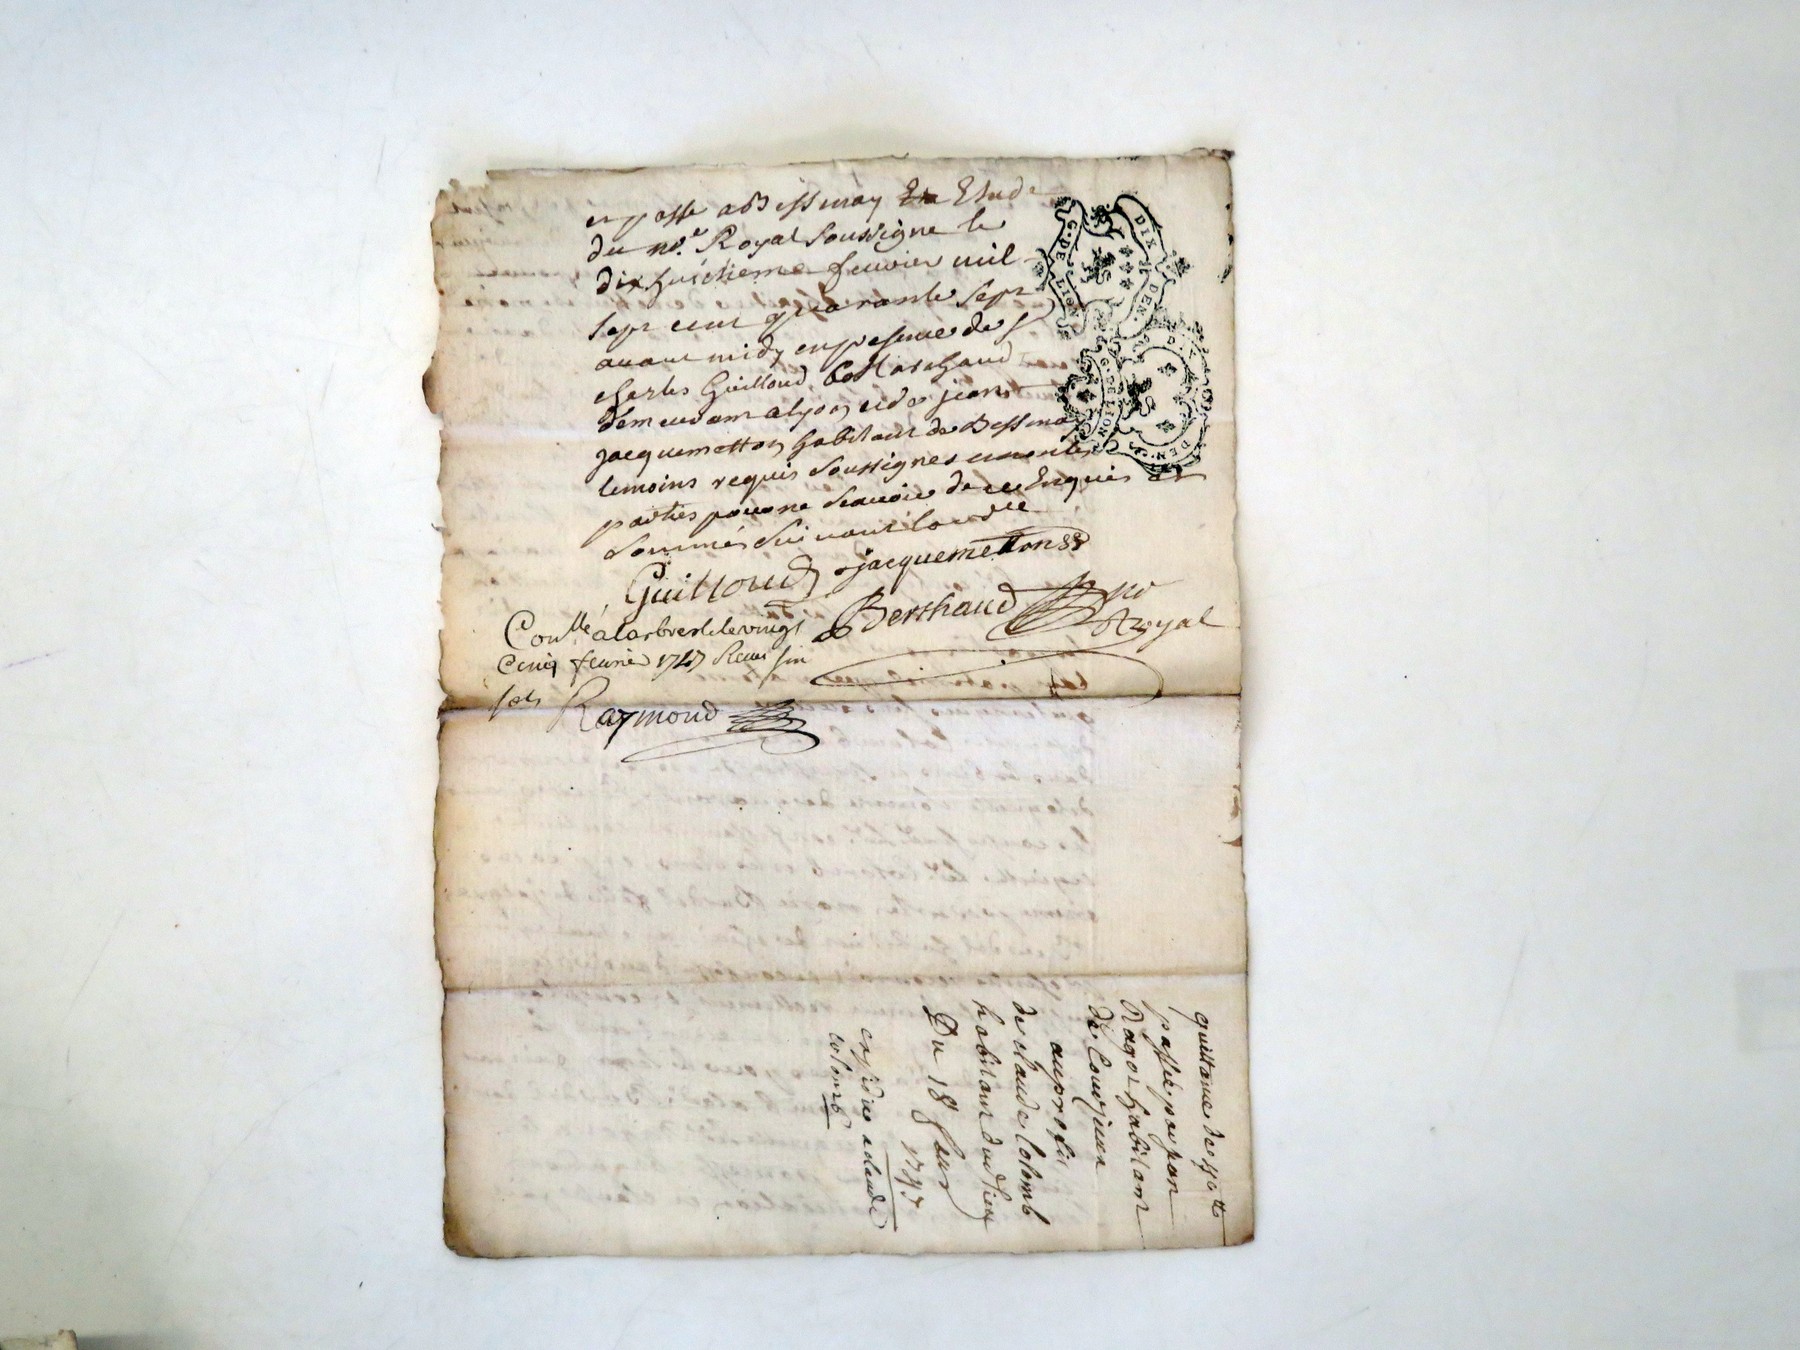 et passé a Bessenay Etude
du no.re Royal soussigne le
dix huictieme feuvrier mil
sept cent quarante sept
avant midy en presence de sr
charles Guilloud Marchand
demeurant a lyon et de jean
jacquemetton habitant de Bessenay
temoins requis soussignes et non les
parties pour ne scavoir de ce Enquis et
sommés suivant lordce
Guilloud jacquemetton
Berthaud no.re Royal
Conllé a larbresle le vingt
cinq fevrier 1747 Recu six
sols
Raymond
G. DE LION DIX DEN.
G. DE LION DEN.
quittance de
passée par
Ragot habitant
de Courzieu
au profit
de claude Colomb
habitant dud lieu
Du 18 fevr
1747
expedie a claude
colomb